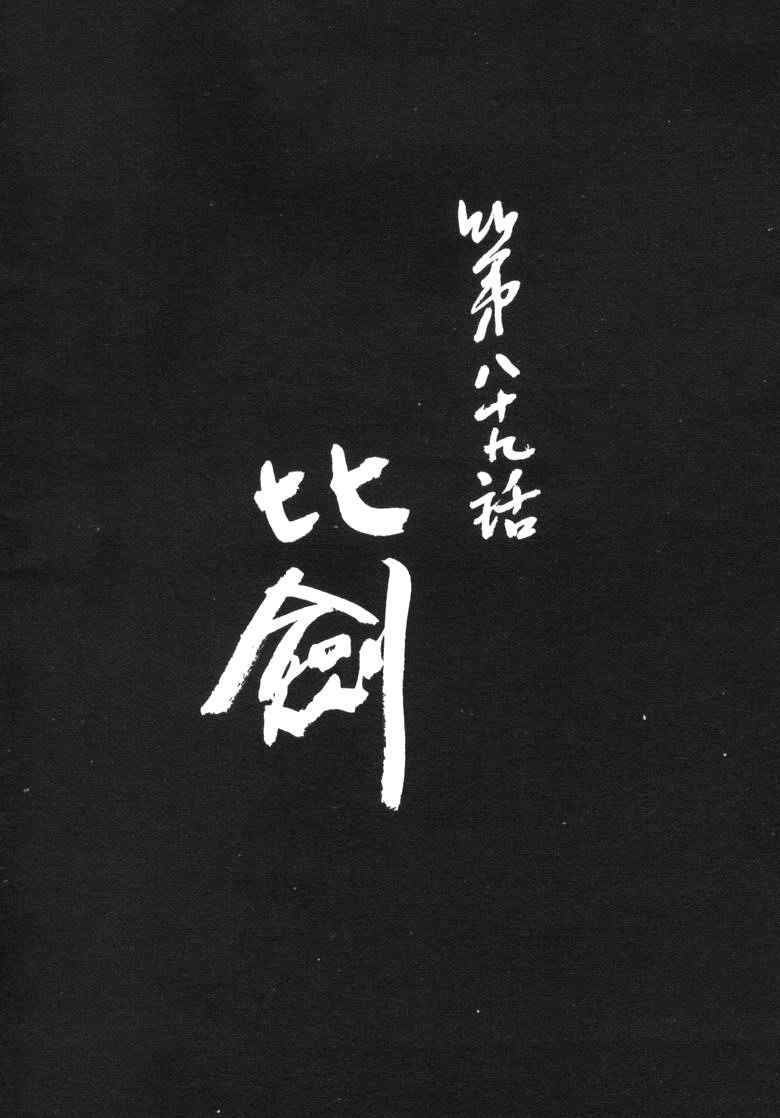 第八十九話
比劍